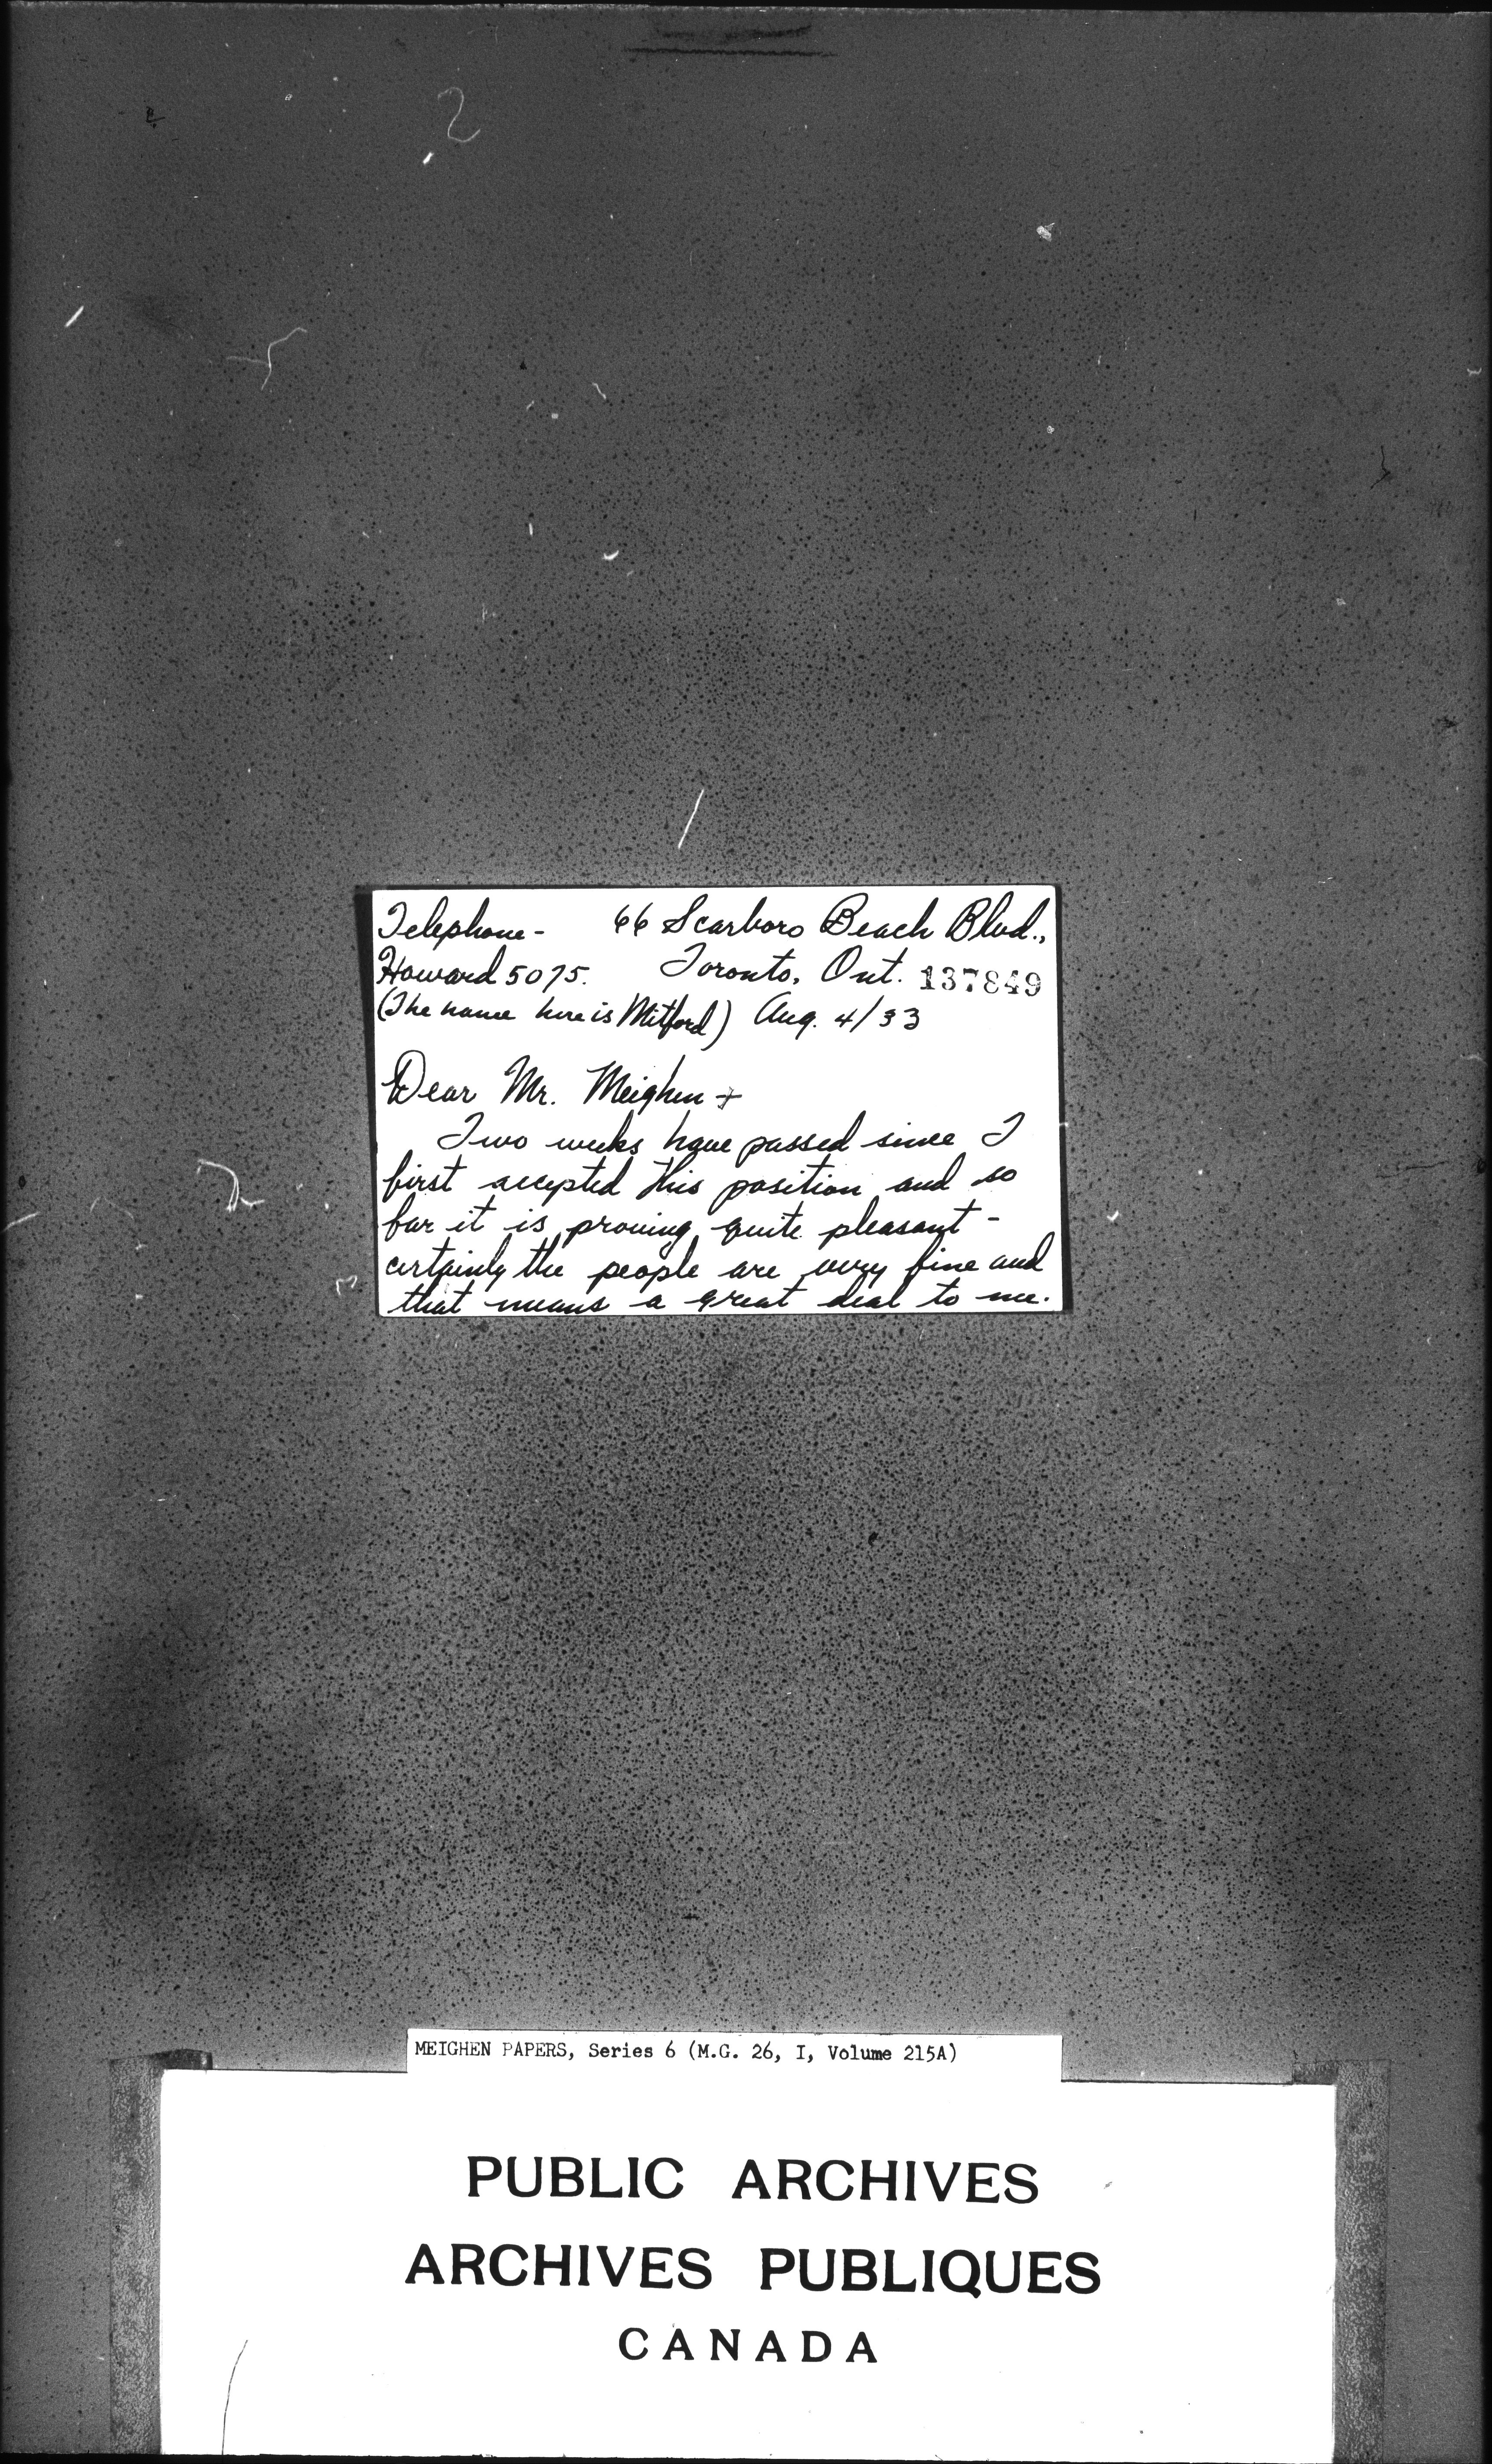 Telephone - 66 Scarboro Beach Blvd.,
Howard 5075. Toronto, Ont. 137849
(The name here is Mitford) Aug. 4/33
Dear Mr. Meighen -
Two weeks have passed since I
first accepted this position and so
far it is proving quite pleasant -
certainly the people are very fine and
that means a great deal to me.
MEIGHEN PAPERS, Series 6 (M.G. 26, I, Volume 215A)
PUBLIC ARCHIVES
ARCHIVES PUBLIQUES
CANADA